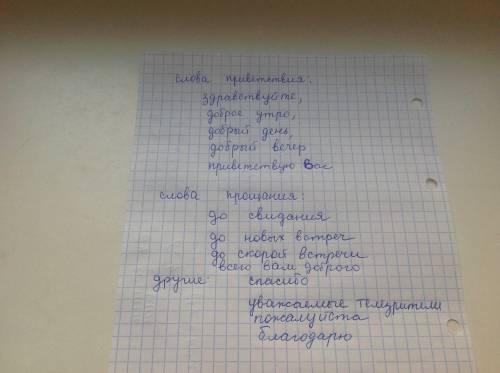 слова приветствия:
здравствуйте,
доброе утро,
добрый день,
добрый вечер
приветствую Вас
слова прощания:
до свидания
до новых встреч
до скорой встречи
всего вам доброго
другие: спасибо
уважаемые телезрители
пожалуйста
благодарю